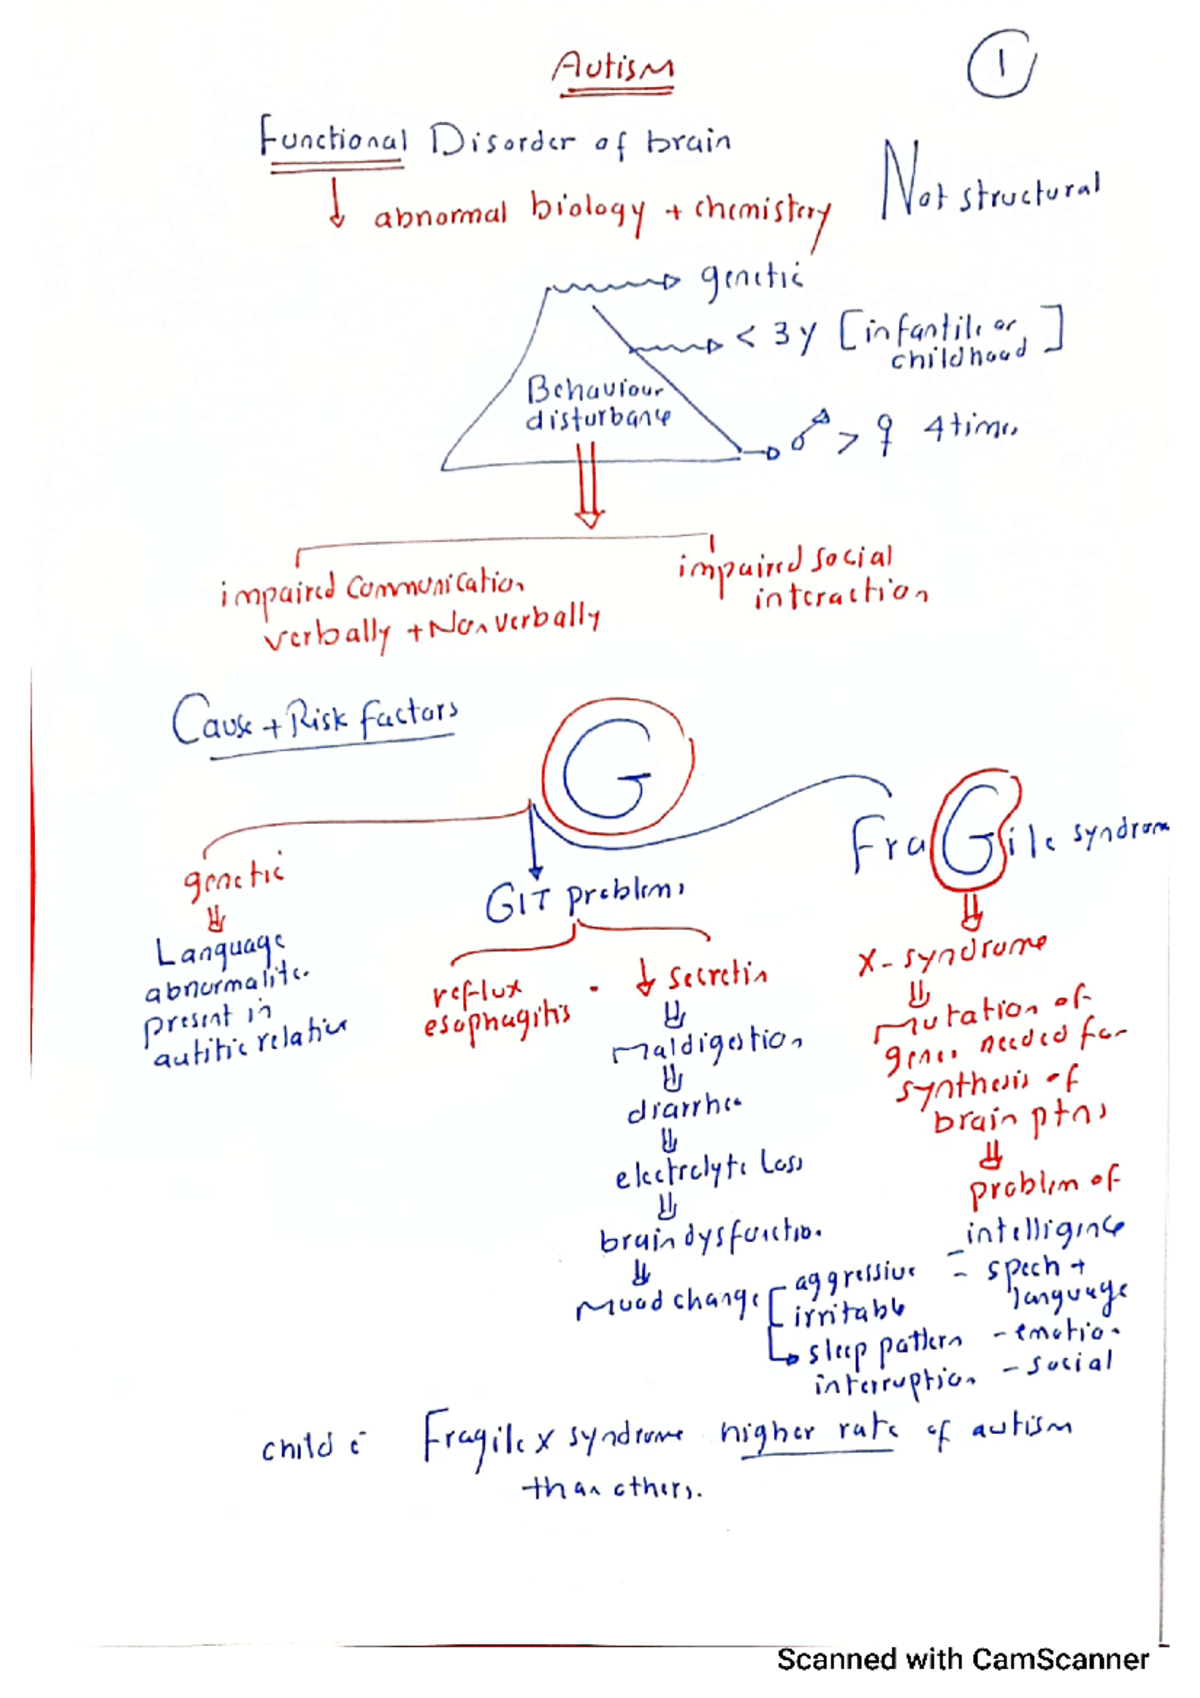 Autism
1
Functional Disorder of brain
Not structural
abnormal biology + chemistry
genetic
< 3 y [infantile or childhood]
Behaviour
disturbance
♂ > ♀ 4 times
impaired communication
verbally + Nonverbally
impaired social
interaction
Cause + Risk factors
G
genetic
Language
abnormalites
present in
autitic relative
GIT problems
reflux
esophagitis
↓ secretin
maldigestion
diarrhea
electrolyte loss
brain dysfunction
Mood change
aggressive
irritable
sleep pattern
interruption
FraGile syndrome
X-syndrome
mutation of
genes needed for
synthesis of
brain ptns
problem of
- intelligence
- spech +
language
- emotion
- social
child c̄ Fragile x syndrome higher rate of autism
than others.
Scanned with CamScanner